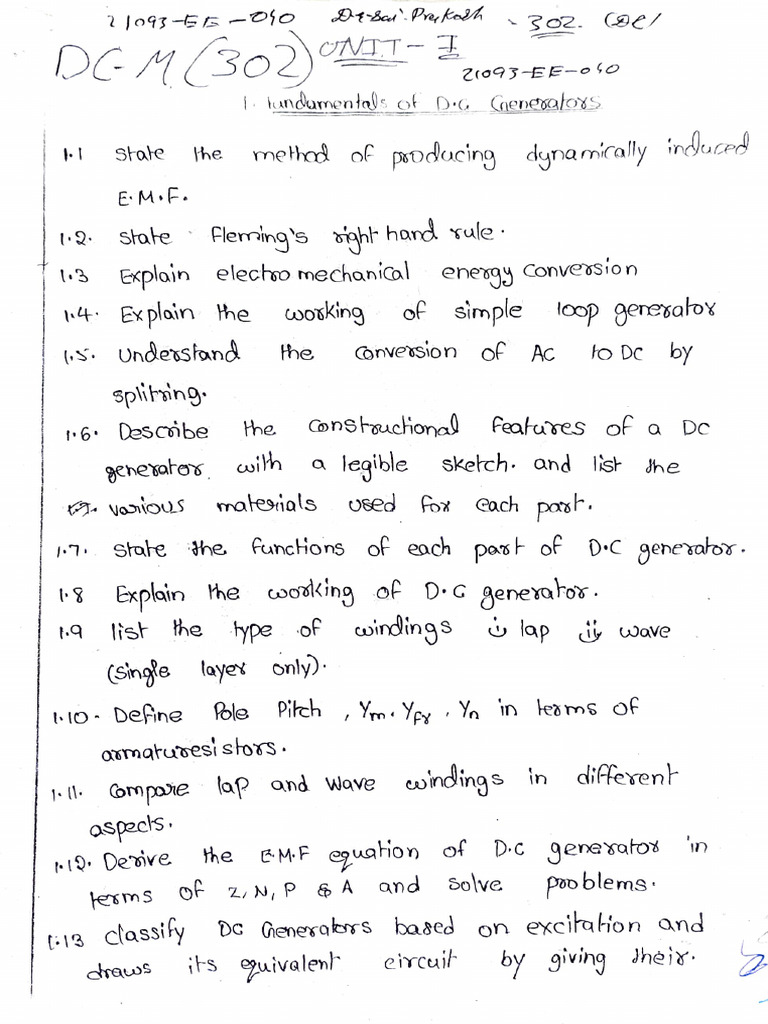 21093-EE-040 Dr. Sai. Prakash - 302.
DC-M (302) UNIT-I
21093-EE-040
1. Fundamentals of D.C Generators
1.1 state the method of producing dynamically induced
E.M.F.
1.2. state Fleming's right hand rule.
1.3 Explain electro mechanical energy conversion
1.4. Explain the working of simple loop generator
1.5. Understand the conversion of AC to DC by
splitring.
1.6. Describe the constructional features of a DC
generator with a legible sketch. and list the
various materials used for each part.
1.7. state the functions of each part of D.C generator.
1.8 Explain the working of D.C generator.
1.9 list the type of windings i) lap ii) wave
(single layer only).
1.10- Define Pole Pitch, Ym. Yfr, Yn in terms of
armaturesistors.
1.11. compare lap and wave windings in different
aspects.
1.12. Derive the E.M.F equation of D.C generator in
terms of Z, N, P & A and solve problems.
1.13 classify DC Generators based on excitation and
draws its equivalent circuit by giving their.